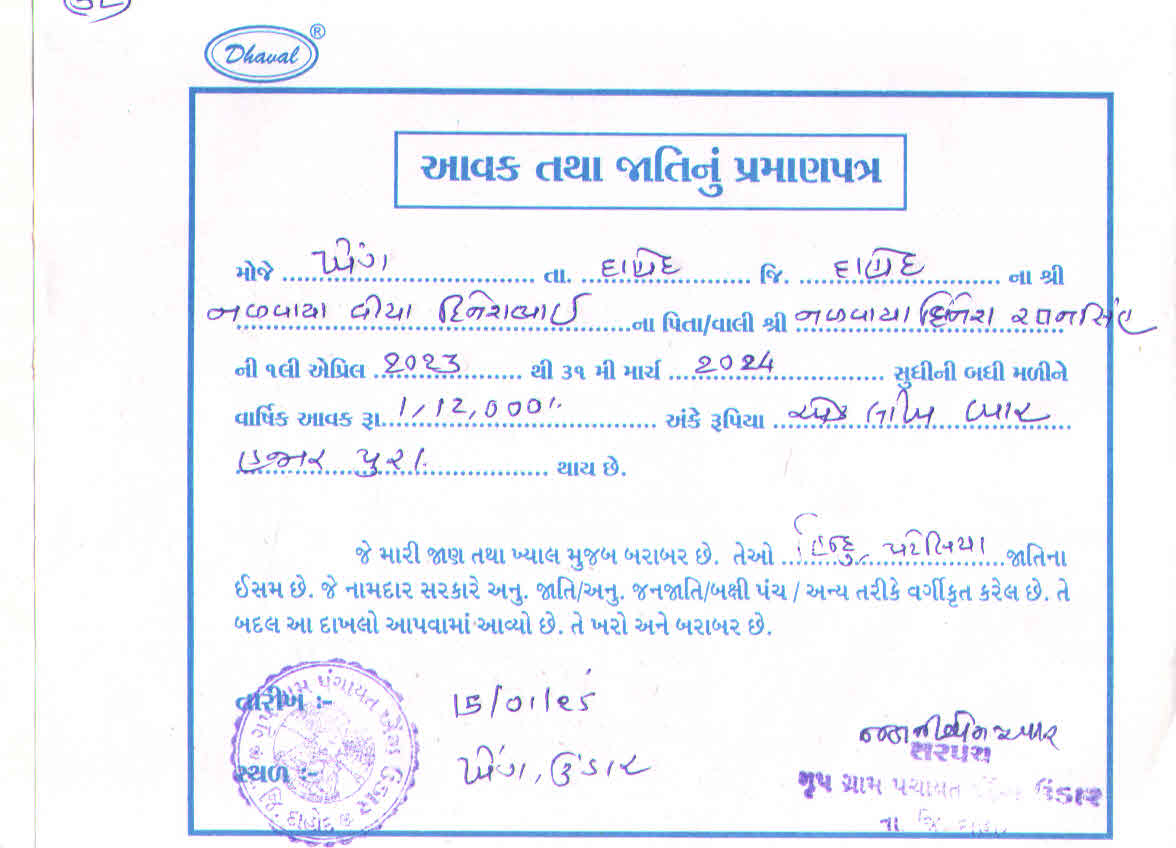 Dhaval ®
આવક તથા જાતિનું પ્રમાણપત્ર
મોજે ખેંગ તા. દાહોદ જિ. દાહોદ ના શ્રી
નળવાયા વીયા દિનેશભાઈ ના પિતા/વાલી શ્રી નળવાયા દિનેશ રતનસિંહ
ની ૧લી એપ્રિલ ૨૦૨૩ થી ૩૧ મી માર્ચ ૨૦૨૪ સુધીની બધી મળીને
વાર્ષિક આવક રૂા. 1,12,000/- અંકે રૂપિયા એક લાખ બાર
હજાર પુરા થાય છે.
જે મારી જાણ તથા ખ્યાલ મુજબ બરાબર છે. તેઓ હિન્દુ પટેલિયા જાતિના
ઈસમ છે. જે નામદાર સરકારે અનુ. જાતિ/અનુ. જનજાતિ/બક્ષી પંચ / અન્ય તરીકે વર્ગીકૃત કરેલ છે. તે
બદલ આ દાખલો આપવામાં આવ્યો છે. તે ખરો અને બરાબર છે.
તારીખ :- 15/01/25
સ્થળ :- ખેંગ, ઉંડાર
સરપંચ
ગૃપ ગ્રામ પંચાયત ઉંડાર
તા. જિ.
ગ્રામ પંચાયત ખેંગ ઉંડાર
દાહોદ